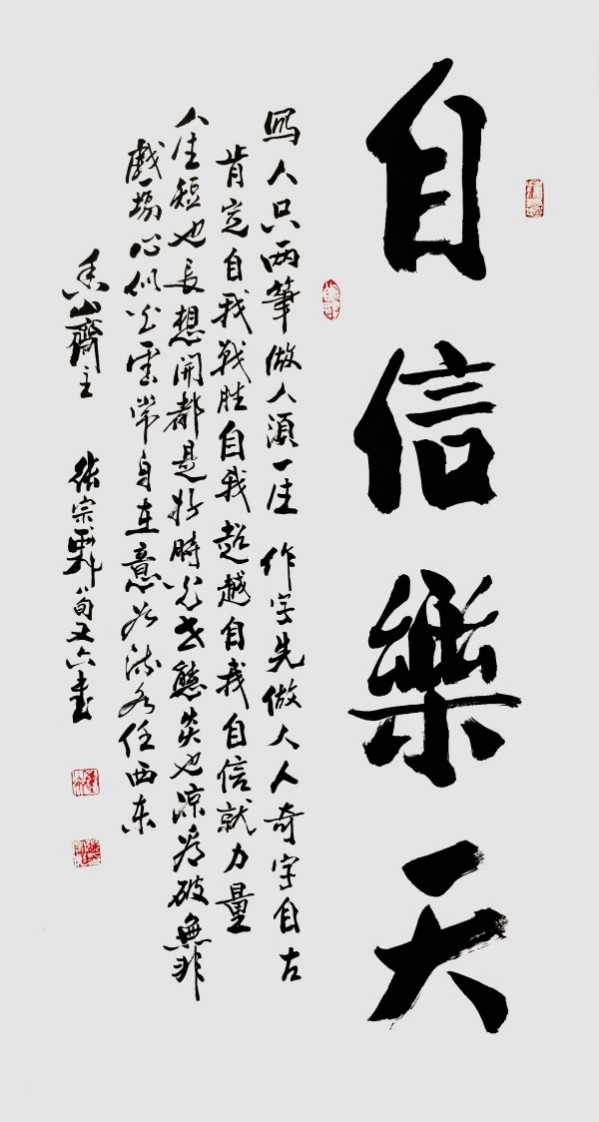 自信樂天
寫人只兩筆做人須一生 作字先做人人奇字自古
肯定自我戰胜自我超越自我自信就力量
人生短也長想開都是好時光世態炎也凉看破無非
戲一場心似白雲常自在意如流水任西东
香山齋主 張宗 八旬又六書